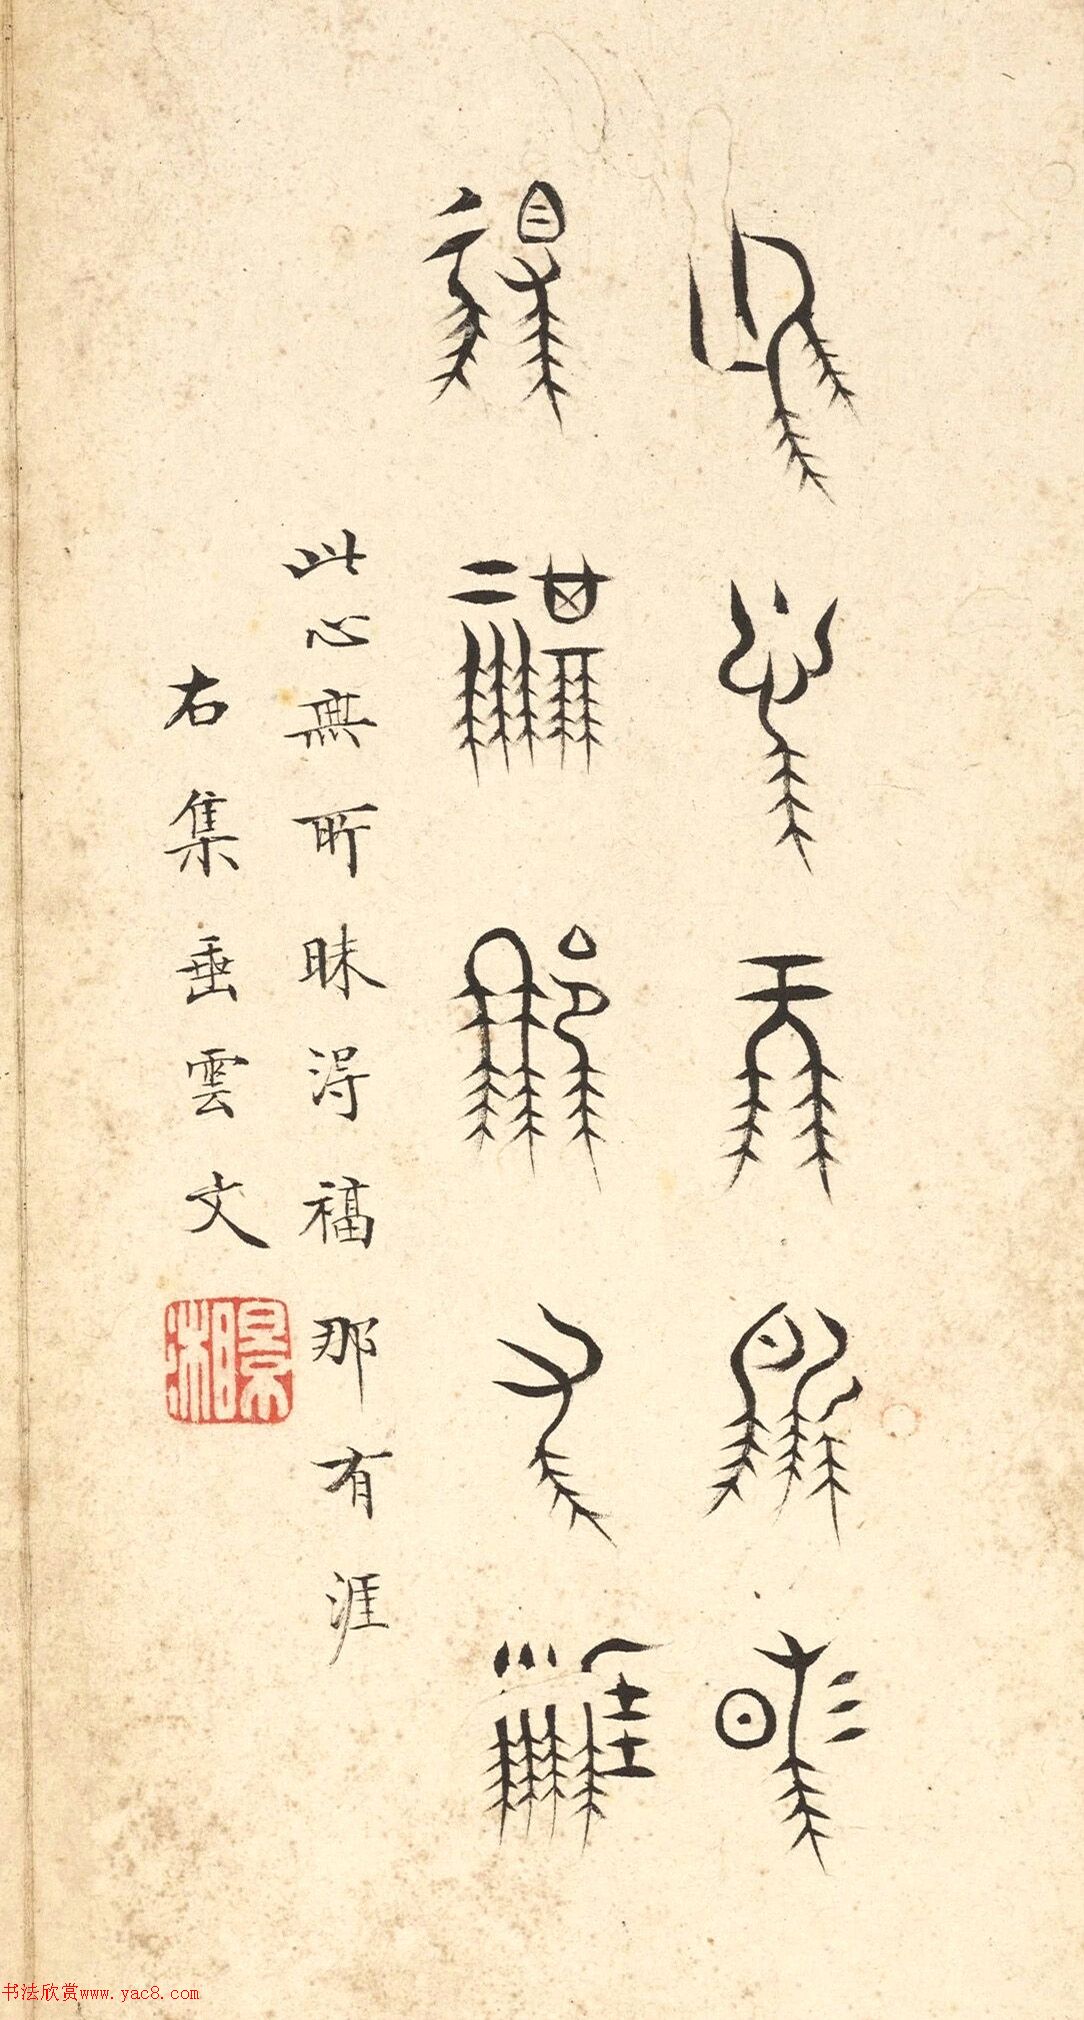 此心無所昧
得福那有涯
此心無所昧得福那有涯
右集垂雲文
书法欣赏www.yac8.com